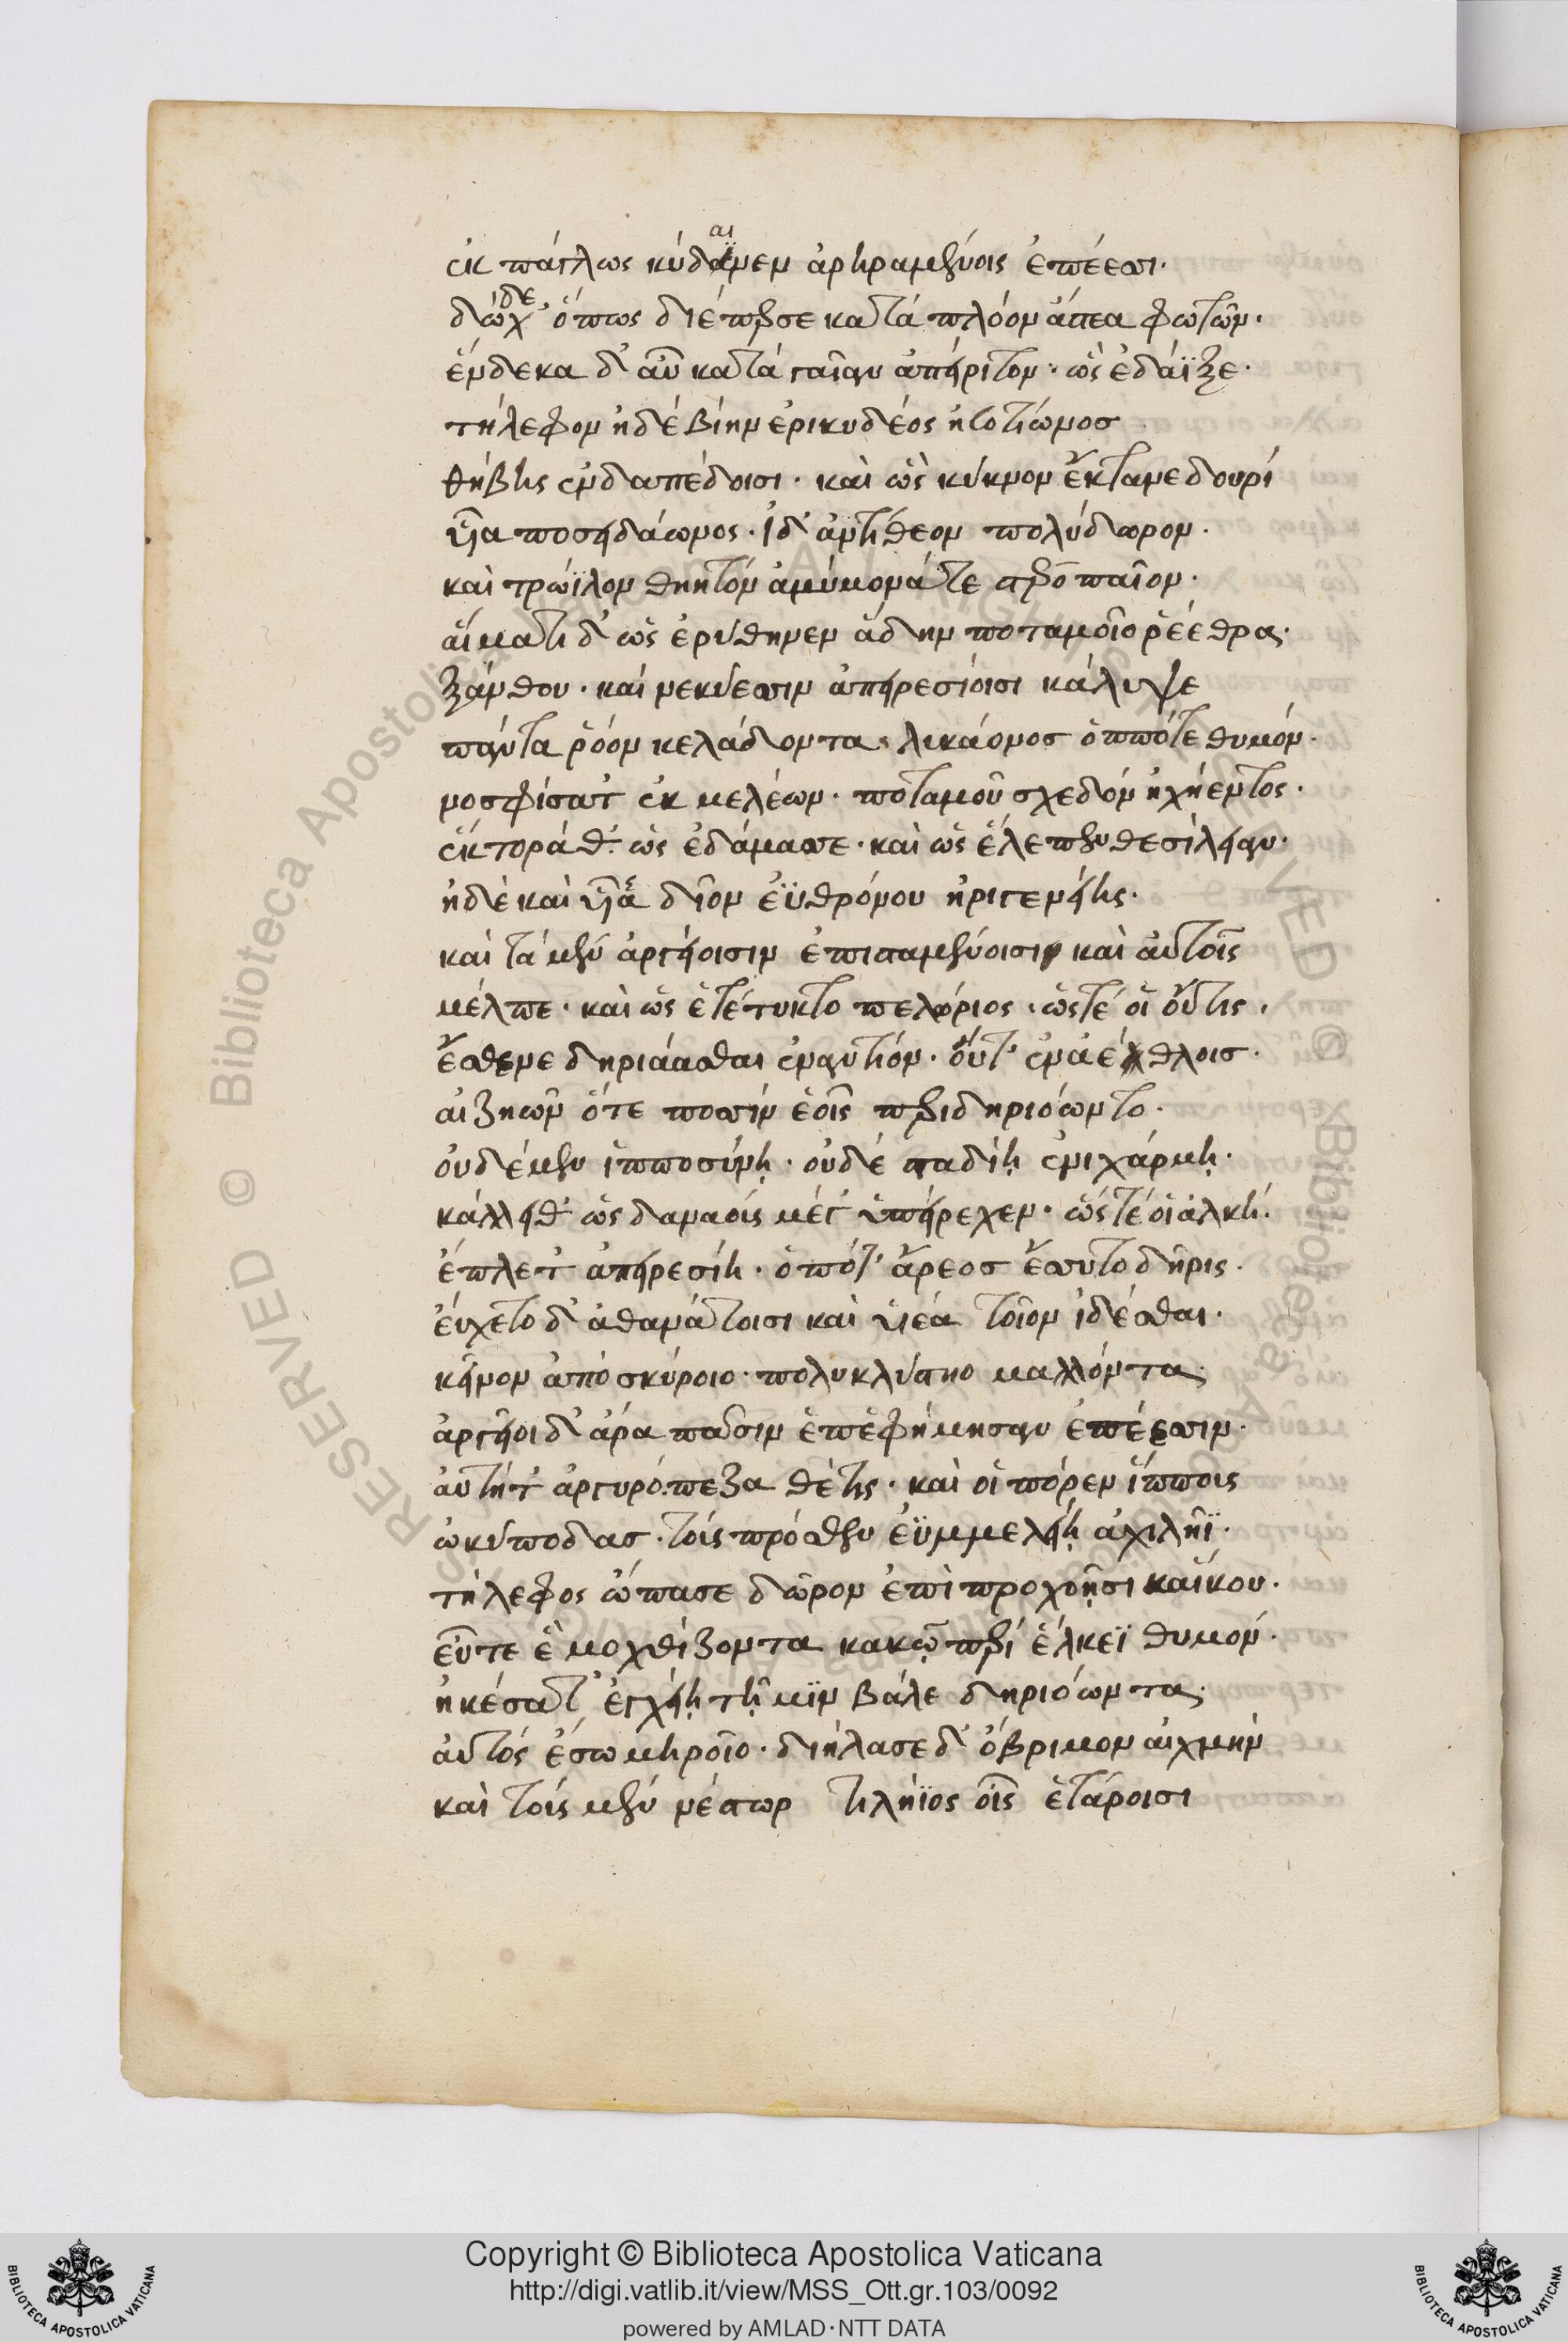 ἐκ πάγλως κύδαινεν ἀρηραμένοις ἐπέεσι·
δώδεχ' ὅπως διέπερσε κατὰ πλόον ἄστεα φωτῶν·
ἕνδεκα δ' αὖ κατὰ γαῖαν ἀπείριτον· ὡς ἐδάϊξε·
τήλεφον ἠδὲ βίην ἐρικυδέος ἠετίωνος
θήβης ἐν δαπέδοισι· καὶ ὡς κύκνον ἔκτανε δουρί
υἷα ποσειδάωνος· ἰδ' ἀντίθεον πολύδωρον·
καὶ τρώϊλον θηητὸν ἀμύμονά τε ἀστεροπαῖον·
αἵματι δ' ὡς ἐρύθηνεν ἄδην ποταμοῖο ῥέεθρα·
ξάνθου· καὶ νεκύεσσιν ἀπειρεσίοισι κάλυψε
πάντα ῥόον κελάδοντα· λυκάονος ὁππότε θυμόν·
νοσφίσατ' ἐκ μελέων· ποταμοῦ σχεδὸν ἠχήεντος·
ἕκτορά θ' ὡς ἐδάμασσε· καὶ ὡς ἕλε πενθεσίλειαν·
ἠδὲ καὶ υἷα δῖον ἐϋθρόνου ἠριγενείης·
καὶ τὰ μὲν ἀργείοισιν ἐπισταμένοισι καὶ αὐτοῖς
μέλπε· καὶ ὡς ἐτέτυκτο πελώριος· ὥς τέ οἱ οὔτις·
ἔσθενε δηριάασθαι ἐναντίον· οὔτ' ἐν ἀέθλοις·
αἰζηῶν ὅτε ποσσὶν ἑοῖς περιδηριόωντο·
οὐδὲ μὲν ἱπποσύνῃ· οὐδὲ σταδίῃ ἐνι χάρμῃ·
κάλλει θ' ὡς δαναοὺς μέγ' ὑπείρεχεν· ὥς τέ οἱ ἀλκή·
ἔπλετ' ἀπειρεσίη· ὁπότ' ἄρεος ἔσσυτο δῆρις·
εὔχετο δ' ἀθανάτοισι καὶ υἱέα τοῖον ἰδέσθαι·
κεῖνον ἀπὸ σκύροιο· πολυκλύστηο μολόντα·
ἀργεῖοι δ' ἄρα πᾶσιν ἐπεφήμησαν ἐπέεσσιν·
αὐτή τ' ἀργυρόπεζα θέτις· καὶ οἱ πόρεν ἵππους
ὠκύποδας· τοὺς πρόσθεν ἐϋμμελίῃ ἀχιλῆϊ·
τήλεφος ὤπασε δῶρον ἐπὶ προχοῇσι καΐκου·
εὖτε ἑ μοχθίζοντα κακῷ περὶ ἕλκεϊ θυμόν·
ἠκέσατ' ἐγχείῃ τῇ μιν βάλε δηριόωντα·
αὐτὸς ἔσω μηροῖο· διήλασε δ' ὄβριμον αἰχμήν
καὶ τοὺς μὲν νέστωρ τιλήϊος οἷς ἑτάροισι
Copyright © Biblioteca Apostolica Vaticana
http://digi.vatlib.it/view/MSS_Ott.gr.103/0092
powered by AMLAD·NTT DATA